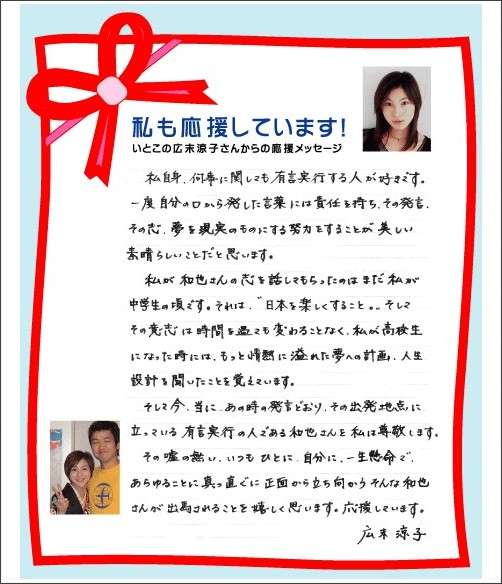 私も応援しています!
いとこの広末涼子さんからの応援メッセージ
私自身、何事に関しても有言実行する人が好きです。
一度自分の口から発した言葉には責任を持ち、その発言、
その志、夢を現実のものにする努力をすることが美しい
素晴らしいことだと思います。
私が和也さんの志を話してもらったのはまだ私が
中学生の頃です。それは、"日本を楽しくすること"。そして
その意志は時間を置ても変わることなく、私が高校生
になった時には、もっと情熱に溢れた夢への計画、人生
設計を聞いたことを覚えています。
そして今、当に、あの時の発言どおり、その出発地点に
立っている有言実行の人である和也さんを私は尊敬します。
その嘘の無い、いつもひとに、自分に、一生懸命で、
あらゆることに真っ直ぐに正面から立ち向かうそんな和也
さんが出馬されることを嬉しく思います。応援しています。
広末涼子